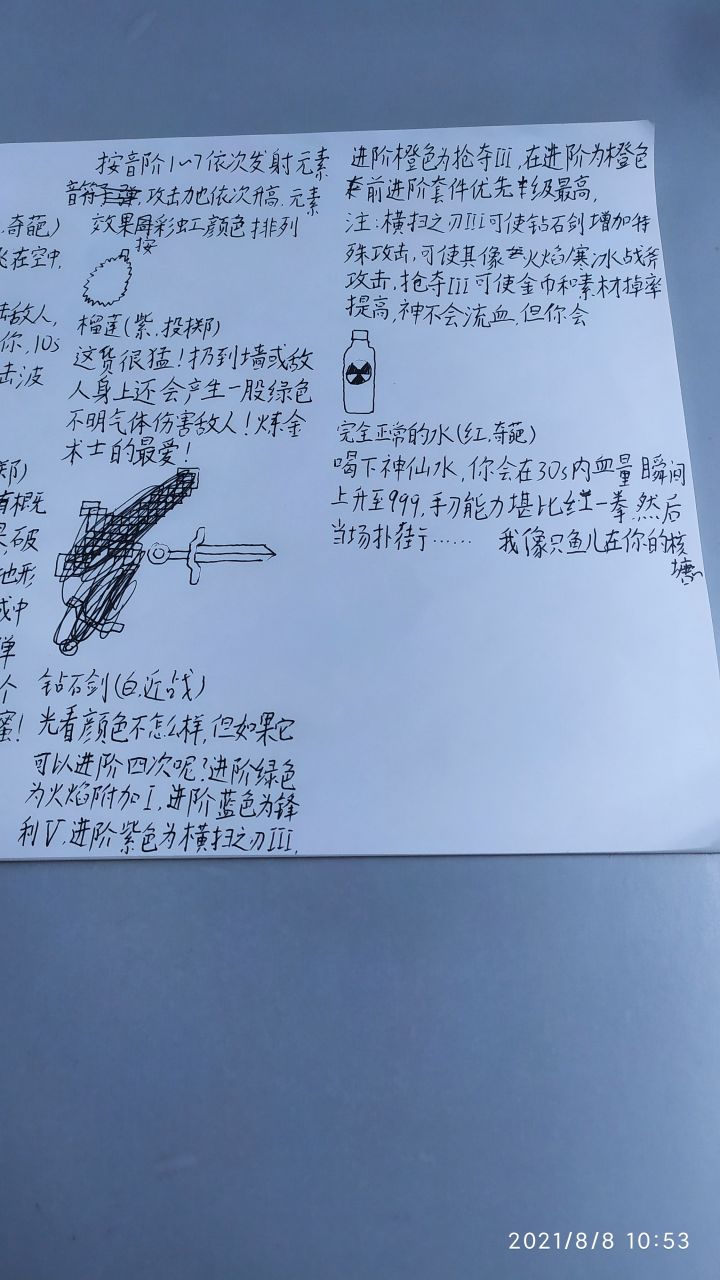 奇葩)
在空中,
敌人,
你,10s
击波
有根
破
地形
中
弹
个
蜜!
按音阶1~7依次发射元素
音符 攻击力也依次升高.元素
效果按彩虹颜色排列
榴莲(紫.投掷)
这货很猛!扔到墙或敌
人身上还会产生一股绿色
不明气体伤害敌人!炼金
术士的最爱!
钻石剑(白.近战)
光看颜色不怎么样,但如果它
可以进阶四次呢?进阶绿色
为火焰附加I,进阶蓝色为锋
利V,进阶紫色为横扫之刃III,
进阶橙色为抢夺III,在进阶为橙色
前进阶套件优先级最高,
注:横扫之刃III可使钻石剑增加特
殊攻击,可使其像火焰/寒冰战斧
攻击,抢夺III可使金币和素材掉率
提高,神不会流血,但你会
完全正常的水(红.奇葩)
喝下神仙水,你会在30s内血量瞬间
上升至999,手刀能力堪比一拳.然后
当场扑街…… 我像只鱼儿在你的核
塘~
2021/8/8 10:53